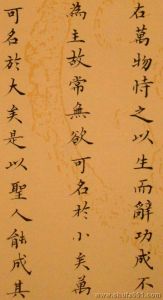 右萬物恃之以生而辭功成不
為主故常無欲可名於小矣萬
可名於大矣是以聖人能成其